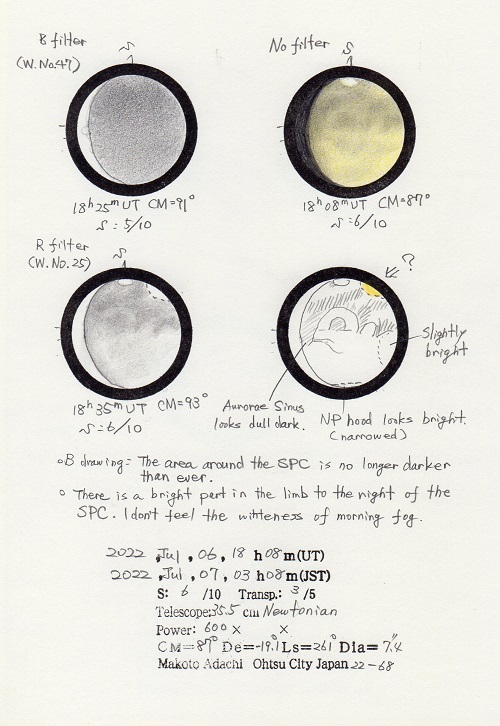 B filter
(W.No.47)
S
18h25mUT CM=91°
S: 5/10
No filter
S
18h08mUT CM=87°
S: 6/10
R filter
(W.No.25)
S
18h35mUT CM=93°
S: 6/10
?
Slightly
bright
Aurorae Sinus
looks dull dark.
NP hood looks bright.
(narrowed)
○B drawing: The area around the SPC is no longer darker
than ever.
○ There is a bright part in the limb to the right of the
SPC. I don't feel the witteness of morning fog.
2022, Jul, 06, 18 h 08 m (UT)
2022, Jul, 07, 03 h 08 m (JST)
S: 6 /10 Transp.: 3 /5
Telescope: 35.5 cm Newtonian
Power: 600 × ×
CM=87° De=-19.1 Ls=261° Dia= 7.4"
Makoto Adachi Ohtsu City Japan 22-68